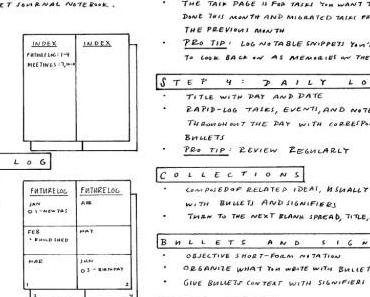 ET JOURNAL NOTEBOOK.
INDEX
FUTURELOG: 1-4
MEETINGS: 7,
INDEX
LOG
FUTURELOG
JAN
FEB
MAR
1
FUTURELOG
APR
MAY
JUN
2
4
THE TASK PAGE IS FOR TASKS YOU WANT T
DONE THIS MONTH AND MIGRATED TASKS FR
THE PREVIOUS MONTH
• PRO TIP: LOG NOTABLE SNIPPETS YOU'
TO LOOK BACK ON AS MEMORIES ON THE
STEP 4: DAILY LO
• TITLE WITH DAY AND DATE
• RAPID-LOG TASKS, EVENTS, AND NOTE
THROUGHOUT THE DAY WITH CORRESPO
BULLETS
• PRO TIP: REVIEW REGULARLY
COLLECTIONS
• COMPOSED OF RELATED IDEAS, USUALLY
WITH BULLETS AND SIGNIFIERS
• TURN TO THE NEXT BLANK SPREAD, TITLE,
BULLETS AND SIGN
• OBJECTIVE SHORT-FORM NOTATION
• ORGANIZE WHAT YOU WRITE WITH BULLET
• GIVE BULLETS CONTEXT WITH SIGNIFIERS